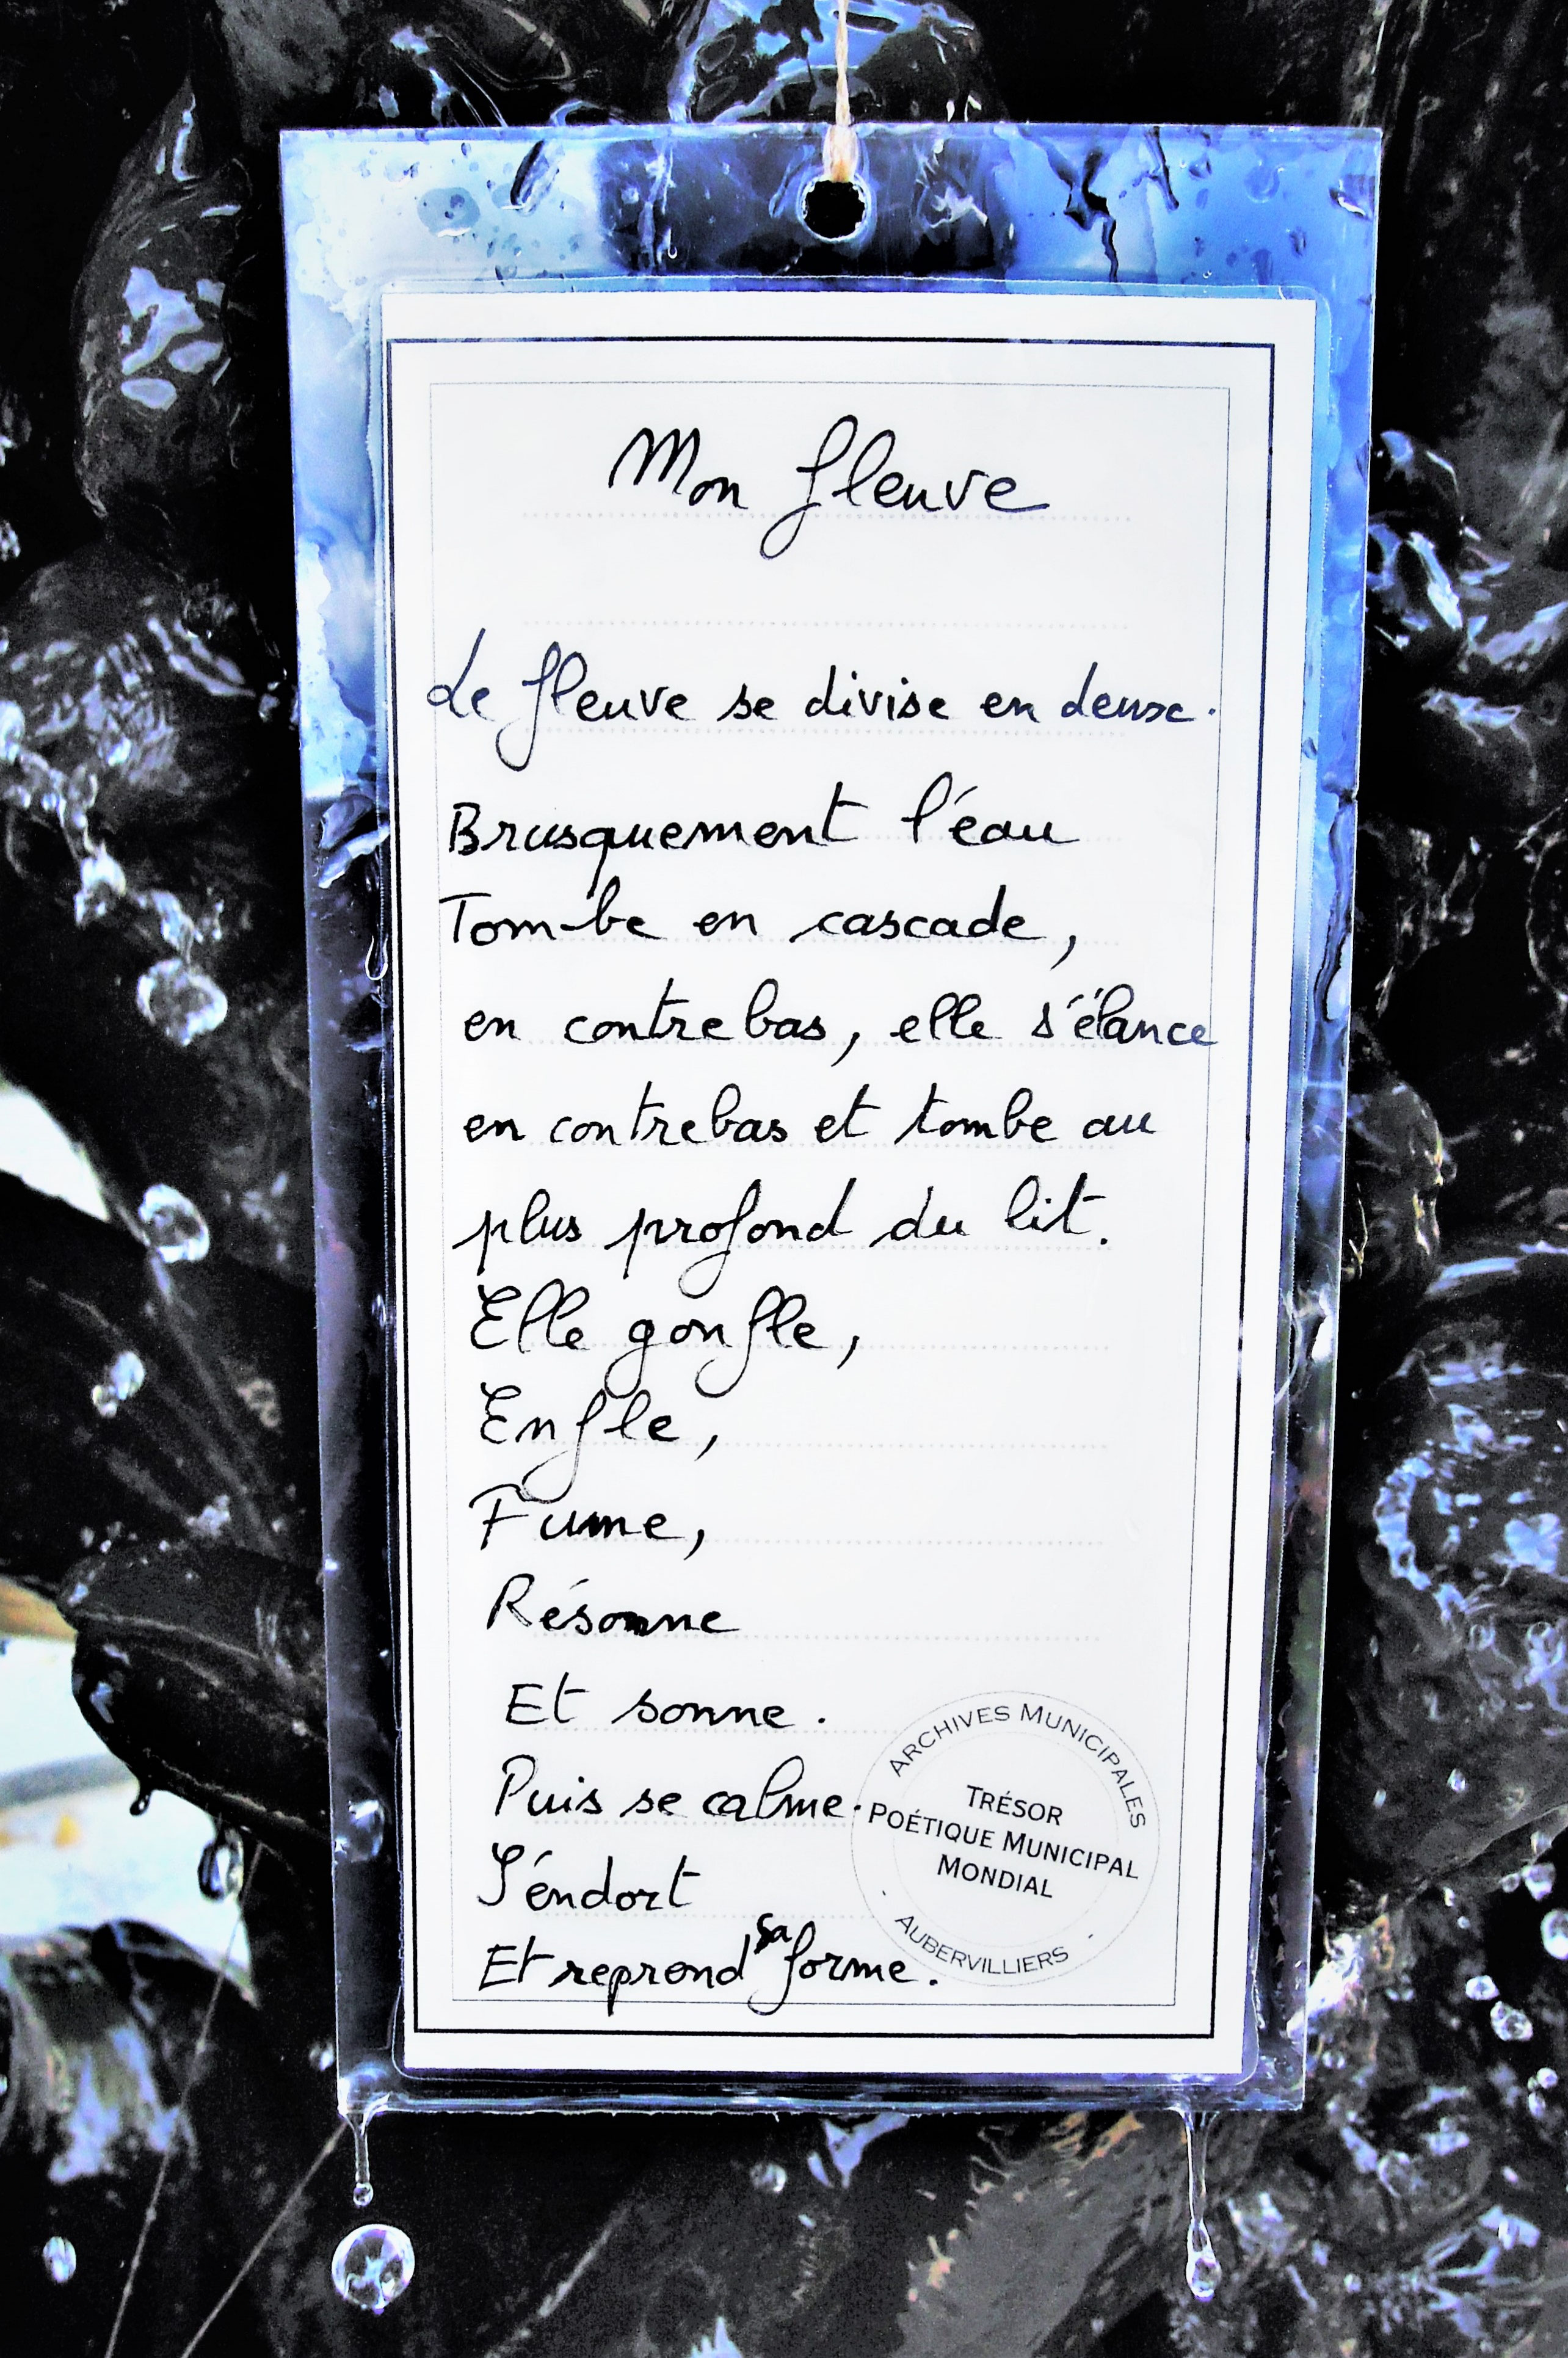 Mon fleuve
Le fleuve se divise en deux.
Brusquement l'éau
Tombe en cascade,
en contrebas, elle s'élance
en contrebas et tombe au
plus profond du lit.
Elle gonfle,
Enfle,
Fume,
Résonne
Et sonne.
Puis se calme.
S'éndort
Et reprend sa forme.
ARCHIVES MUNICIPALES
TRÉSOR
POÉTIQUE MUNICIPAL
MONDIAL
AUBERVILLIERS